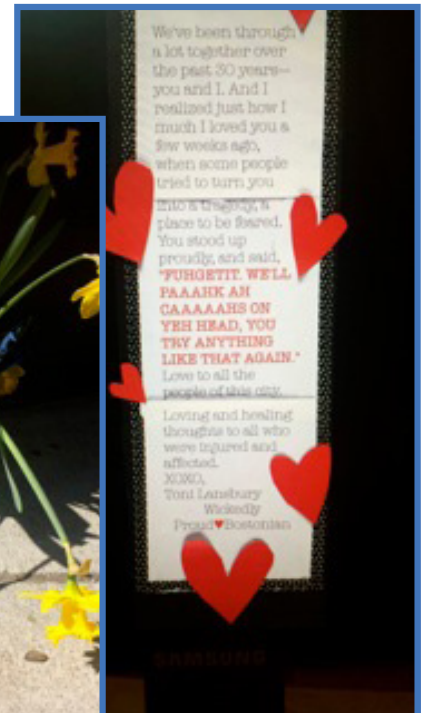 We've been through
a lot together over
the past 30 years—
you and I. And I
realized just how I
much I loved you a
few weeks ago,
when some people
tried to turn you
into a tragedy, a
place to be feared.
You stood up
proudly, and said,
"FUHGETIT. WE'LL
PAAAHK AH
CAAAAAHS ON
YEH HEAD, YOU
TRY ANYTHING
LIKE THAT AGAIN."
Love to all the
people of this city.
Loving and healing
thoughts to all who
were injured and
affected.
XOXO,
Toni Lansbury
Wickedly
Proud♥Bostonian
SAMSUNG